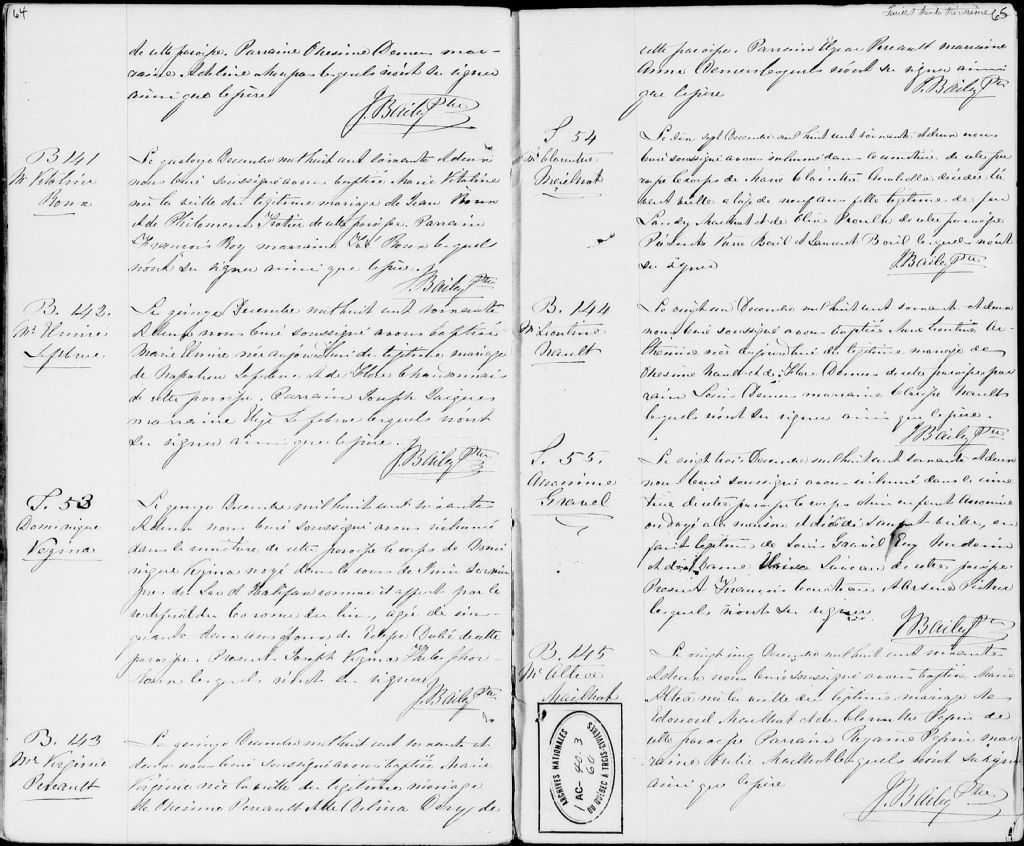 64
de cette paroisse. Parrain Onesime Demers mar-
raine Adeline lesquels n'ont su signer
ainsi que le père
J. Bailey Ptre
B. 141
Me Vitaline
Roux
Le quatorze Decembre mil huit cent soixante et deux
nous Curé soussigné avons baptisé Marie Vitaline
née la veille du légitime mariage de Jean Roux
et de Philomene de cette paroisse. Parrain
François Roy marraine Roux lesquels
n'ont su signer ainsi que le père.
J. Bailey Ptre
B. 142.
Me Elmire
Lefebvre
Le quinze Decembre mil huit cent soixante
et deux nous Curé soussigné avons baptisé
Marie Elmire née aujourd'hui du légitime mariage
de Napoleon Lefebvre et de Flore Chardonnais
de cette paroisse. Parrain Joseph Jacques
marraine Eliza Lefebvre lesquels n'ont
su signer ainsi que le père.
J. Bailey Ptre
S. 53
Dominique
Vezina
Le quinze Decembre mil huit cent soixante
et deux nous Curé soussigné avons inhumé
dans le cimetière de cette paroisse le corps de Domi
nique Vezina noyé dans le cours de Juin dernier
près du Lac d'Halifax comme il appert par le
certificat du Coroner du lieu, agé de cin-
quante deux ans époux de Dubé de cette
paroisse. Présents Joseph Vezina
lesquels n'ont su signer
J. Bailey Ptre
B. 143
Me Virginie
Perreault
Le quinze Decembre mil huit cent soixante et
deux nous Curé soussigné avons baptisé Marie
Virginie née la veille du légitime mariage
de Onesime Perreault et de Delima de
Feuillet trente troisième 65
cette paroisse. Parrain Edgar Perreault marraine
Anna Demers lesquels n'ont su signer ainsi
que le père
J. Bailey Ptre
S. 54
Me Clorinthe
Mailhot
Le dix sept Decembre mil huit cent soixante et deux nous
Curé soussigné avons inhumé dans le cimetière de cette pa
roisse le corps de Marie Clorinthe decedée l'a
vant veille à l'âge de neuf ans fille légitime de
Mailhot et de Olive de cette paroisse
Présents Baril et Laurent Baril lesquels n'ont
su signer
J. Bailey Ptre
B. 144
Me Leontine
Nault
Le vingt un Decembre mil huit cent soixante et deux
nous Curé soussigné avons baptisé Marie Leontine Ar-
themise née aujourd'hui du légitime mariage de
Onesime Nault et de Flore Demers de cette paroisse par
rain Louis Demers marraine Nault
lesquels n'ont su signer ainsi que le père.
J. Bailey Ptre
S. 55.
Anonime
Gravel
Le vingt trois Decembre mil huit cent soixante et deux
nous Curé soussigné avons inhumé dans le cime
tière de cette paroisse le corps d'un enfant Anonime
ondoyé à la maison et decedé l'avant veille, en
fant légitime de Louis Gravel Ecuy Medecin
et de Dame de cette paroisse
Présent François et Arsene
lesquels n'ont su signer
J. Bailey Ptre
B. 145
Me Altea
Mailhot
Le vingt cinq Decembre mil huit cent soixante
et deux nous Curé soussigné avons baptisé Marie
Altea née la veille du légitime mariage de
Edouard Mailhot et de Clorinthe Pepin de
cette paroisse Parrain Pepin mar
raine Julie Mailhot lesquels n'ont su signer
ainsi que le père
J. Bailey Ptre
ARCHIVES NATIONALES
AC- 40 3
60
DU QUÉBEC À TROIS-RIVIÈRES